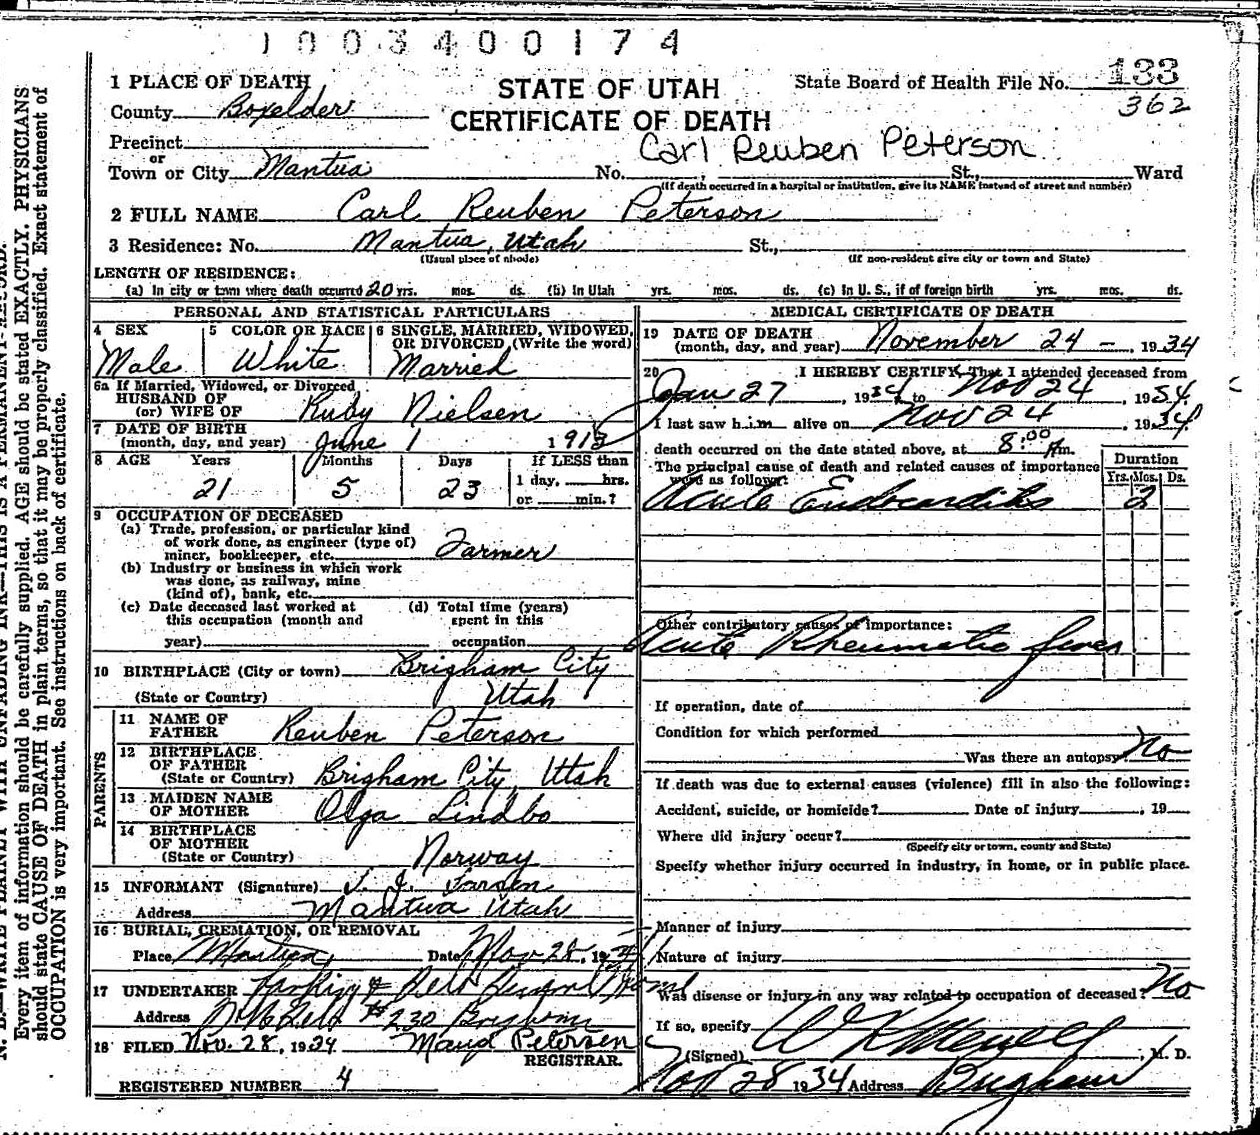 1003400174
1 PLACE OF DEATH
STATE OF UTAH
State Board of Health File No. 133
County Boxelder
362
CERTIFICATE OF DEATH
Precinct
Carl Reuben Peterson
or
Town or City Mantua No. St., Ward
(If death occurred in a hospital or institution, give its NAME instead of street and number)
2 FULL NAME Carl Reuben Peterson
3 Residence: No. Mantua, Utah St.,
(Usual place of abode) (If non-resident give city or town and State)
LENGTH OF RESIDENCE:
(a) In city or town where death occurred 20 yrs. mos. ds. (b) In Utah yrs. mos. ds. (c) In U. S., if of foreign birth yrs. mos. ds.
PERSONAL AND STATISTICAL PARTICULARS
4 SEX 5 COLOR OR RACE 6 SINGLE, MARRIED, WIDOWED,
OR DIVORCED (Write the word)
Male White Married
6a If Married, Widowed, or Divorced
HUSBAND OF
(or) WIFE OF Ruby Nielsen
7 DATE OF BIRTH
(month, day, and year) June 1 1913
8 AGE Years Months Days If LESS than
1 day, hrs.
21 5 23 or min.?
9 OCCUPATION OF DECEASED
(a) Trade, profession, or particular kind
of work done, as engineer (type of)
miner, bookkeeper, etc. Farmer
(b) Industry or business in which work
was done, as railway, mine
(kind of), bank, etc.
(c) Date deceased last worked at (d) Total time (years)
this occupation (month and spent in this
year) occupation
10 BIRTHPLACE (City or town) Brigham City
(State or Country) Utah
PARENTS
11 NAME OF
FATHER Reuben Peterson
12 BIRTHPLACE
OF FATHER
(State or Country) Brigham City, Utah
13 MAIDEN NAME
OF MOTHER Olga Lindbo
14 BIRTHPLACE
OF MOTHER
(State or Country) Norway
15 INFORMANT (Signature)
Address Mantua Utah
16 BURIAL, CREMATION, OR REMOVAL
Place Mantua Date Nov 28, 1934
17 UNDERTAKER
Address #230 Brigham
18 FILED Nov. 28, 1934 Maud Petersen
REGISTRAR.
REGISTERED NUMBER 4
MEDICAL CERTIFICATE OF DEATH
19 DATE OF DEATH
(month, day, and year) November 24 - 1934
20 I HEREBY CERTIFY, That I attended deceased from
Jan 27, 1934, to Nov 24, 1934
I last saw him alive on Nov 24, 1934
death occurred on the date stated above, at 8:00 Am.
The principal cause of death and related causes of importance
were as follows:
Duration
Yrs. Mos. Ds.
Acute Endocarditis 2
Other contributory causes of importance:
Acute Rheumatic fever
If operation, date of
Condition for which performed
Was there an autopsy No
If death was due to external causes (violence) fill in also the following:
Accident, suicide, or homicide? Date of injury , 19
Where did injury occur?
(Specify city or town, county and State)
Specify whether injury occurred in industry, in home, or in public place.
Manner of injury
Nature of injury
Was disease or injury in any way related to occupation of deceased? No
If so, specify
(Signed) , M. D.
Nov 28 1934 Address Brigham
N. B.—WRITE PLAINLY WITH UNFADING INK—THIS IS A PERMANENT RECORD.
Every item of information should be carefully supplied. AGE should be stated EXACTLY. PHYSICIANS
should state CAUSE OF DEATH in plain terms, so that it may be properly classified. Exact statement of
OCCUPATION is very important. See instructions on back of certificate.